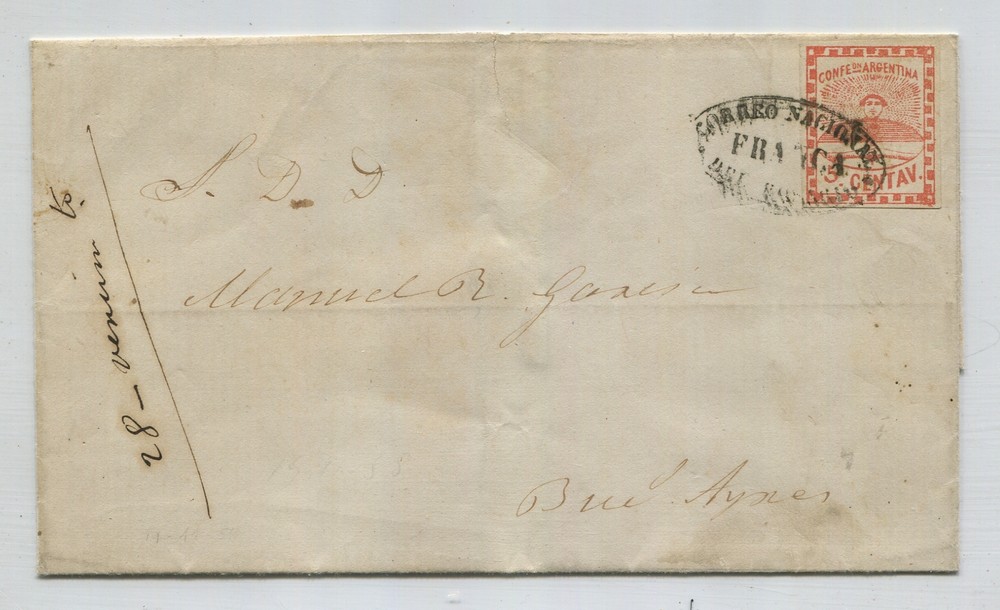 CONFEON ARGENTINA
5 CENTAV.
CORREO NACIONAL
FRANCA
DEL
S. D. D.
Manuel R. Garcia
Bues Ayres
28 -